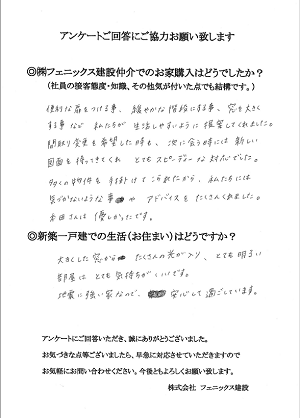 アンケートご回答にご協力お願い致します
◎㈱フェニックス建設仲介でのお家購入はどうでしたか？
（社員の接客態度・知識、その他気が付いた点でも結構です。）
便利な扉をつける事、緩やかな階段にする事、窓を大きく
する事など 私たちが 生活しやすいように 提案してくれました。
間取り変更を希望した時も、次に会う時には 新しい
図面を 持ってきてくれ とてもスピーディーな対応でした。
多くの物件を 手掛けて こられたから、私たちには
気づかないような事 アドバイスを たくさんくれました。
本田さんは 優しかったです。
◎新築一戸建での生活（お住まい）はどうですか？
大きくした窓から たくさんの光が入り、とても明るい
部屋は とても気持ちがいいです。
地震に強い家なので、安心して過ごしています。
アンケートにご回答いただき、誠にありがとうございました。
お気づきな点等ございましたら、早急に対応させていただきますので
お気軽にお問い合わせください。今後ともよろしくお願い致します。
株式会社 フェニックス建設